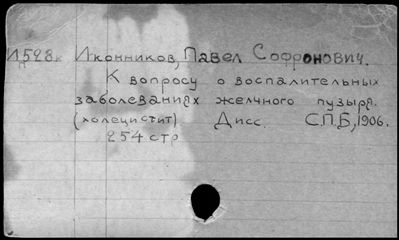 И528. Иконников, Павел Софронович.
К вопросу о воспалительных
заболеваниях желчного пузыря.
(холецистит) Дисс. С.П.Б., 1906.
254 стр